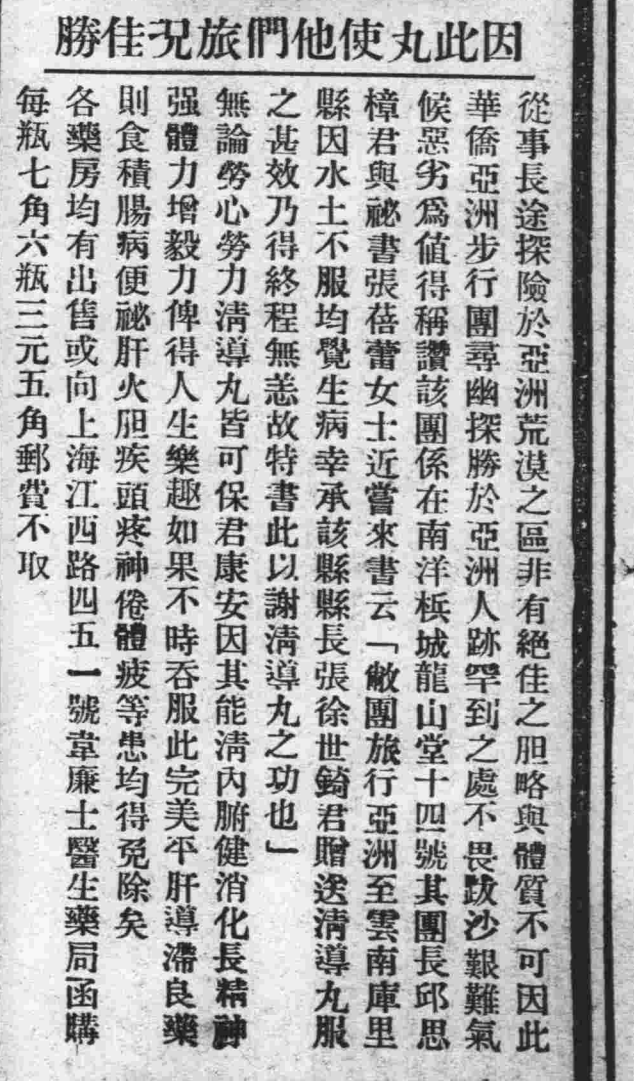 因此丸使他們旅況佳勝
從事長途探險於亞洲荒漠之區非有絕佳之胆略與體質不可因此
華僑亞洲步行團尋幽探勝於亞洲人跡罕到之處不畏跋沙艱難氣
候惡劣爲値得稱讚該團係在南洋梹城龍山堂十四號其團長邱思
樟君與祕書張蓓蕾女士近嘗來書云「敝團旅行亞洲至雲南庫里
縣因水土不服均覺生病幸承該縣縣長張徐世錡君贈送淸導丸服
之甚效乃得終程無恙故特書此以謝淸導丸之功也」
無論勞心勞力淸導丸皆可保君康安因其能淸內腑健消化長精神
强體力增毅力俾得人生樂趣如果不時吞服此完美平肝導滯良藥
則食積腸病便祕肝火胆疾頭疼神倦體疲等患均得免除矣
各藥房均有出售或向上海江西路四五一號韋廉士醫生藥局函購
每瓶七角六瓶三元五角郵費不取